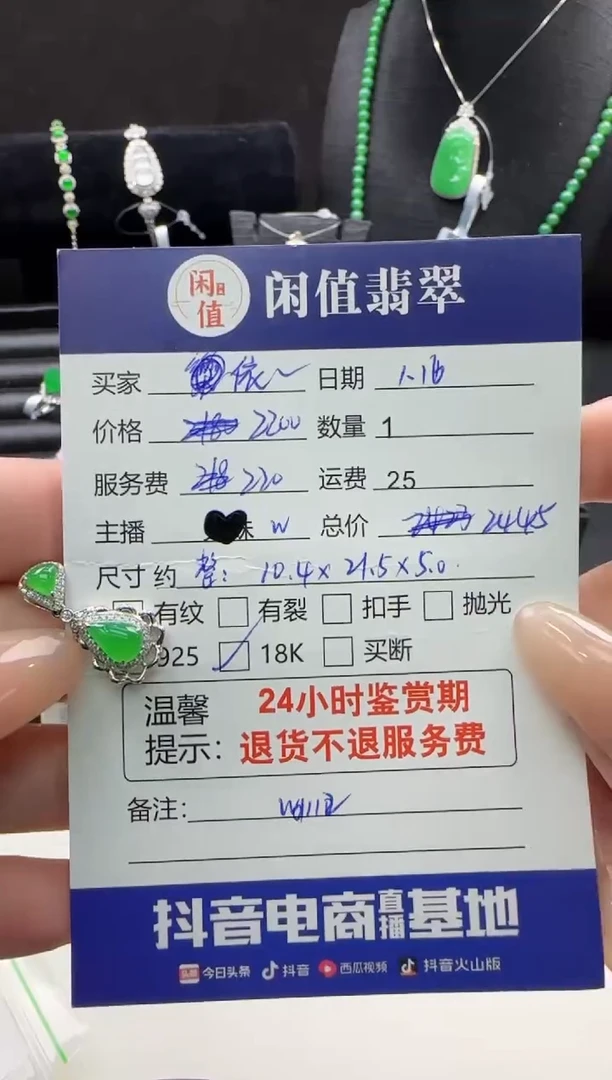 闲值
闲值翡翠
买家 依 日期 1.16
价格 2200 数量 1
服务费 220 运费 25
主播 妹 W 总价 2445
尺寸 约 整: 10.4×21.5×5.0
有纹 有裂 扣手 抛光
925 18K 买断
温馨提示: 24小时鉴赏期
退货不退服务费
备注:
抖音电商直播基地
头条 今日头条 抖音 西瓜视频 抖音火山版